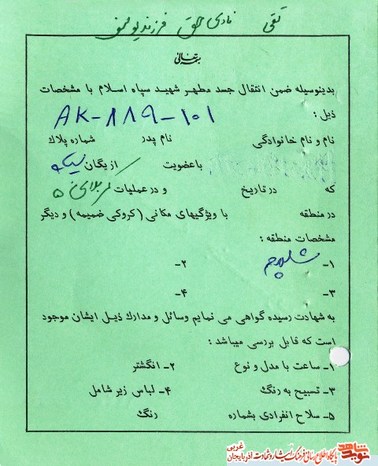 تقی نادی حق فرزند یوسف
بسمه تعالی
بدینوسیله ضمن انتقال جسد مطهر شهید سپاه اسلام با مشخصات
ذیل :
AK-۸۸۹-۱۰۱
نام و نام خانوادگی نام پدر شماره پلاک
با عضویت از یگان
که در تاریخ و در عملیات کربلای ۵
در منطقه با ویژگیهای مکانی (کروکی ضمیمه) و دیگر
مشخصات منطقه :
۱- شلمچه ۲-
۳- ۴-
به شهادت رسیده گواهی می نمایم وسائل و مدارک ذیل ایشان موجود
است که قابل بررسی میباشد :
۱- ساعت با مدل و نوع ۲- انگشتر
۳- تسبیح به رنگ ۴- لباس زیر شامل
۵- سلاح انفرادی بشماره رنگ
پایگاه اطلاع رسانی فرهنگ ایثار و شهادت آذربایجان غربی